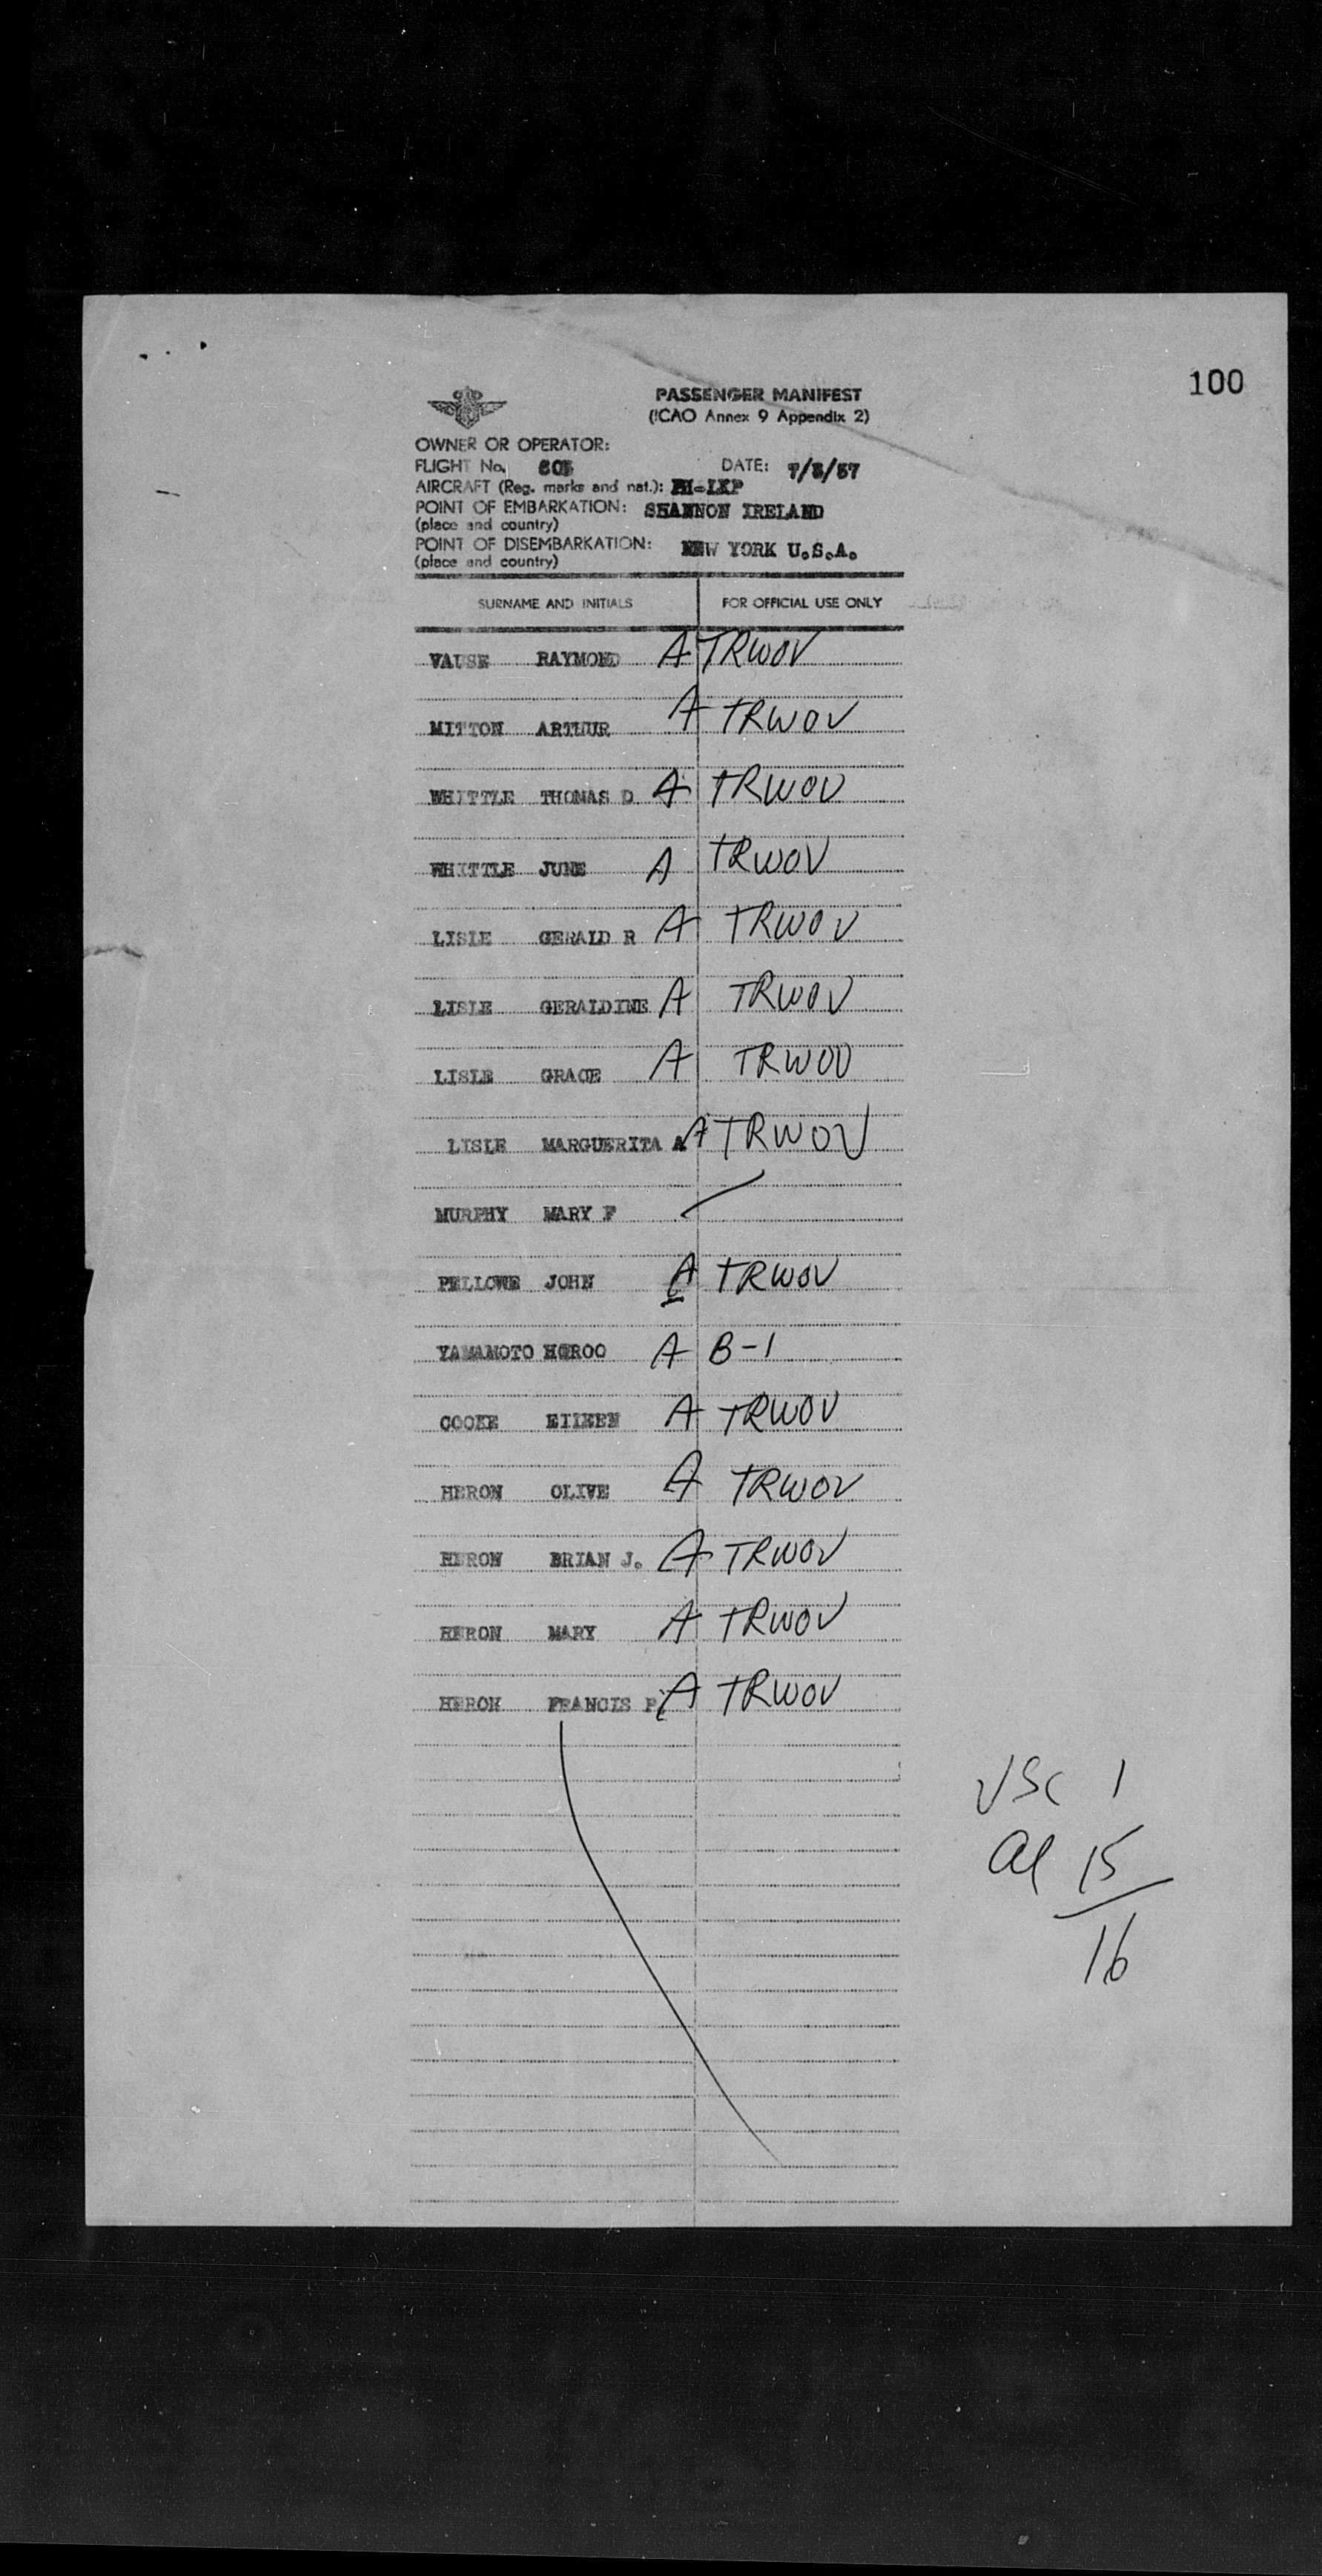 100
PASSENGER MANIFEST
(ICAO Annex 9 Appendix 2)
OWNER OR OPERATOR:
FLIGHT No. 605 DATE: 7/3/57
AIRCRAFT (Reg. marks and nat.): PH-LKP
POINT OF EMBARKATION: SHANNON IRELAND
(place and country)
POINT OF DISEMBARKATION: NEW YORK U.S.A.
(place and country)
SURNAME AND INITIALS FOR OFFICIAL USE ONLY
VAUSE RAYMOND A TRWOV
MITTON ARTHUR A TRWOV
WHITTLE THOMAS D A TRWOV
WHITTLE JUNE A TRWOV
LISLE GERALD R A TRWOV
LISLE GERALDINE A TRWOV
LISLE GRACE A TRWOV
LISLE MARGUERITA A A TRWOV
MURPHY MARY F
PELLOWE JOHN A TRWOV
YAMAMOTO HOROO A B-1
COOKE EILEEN A TRWOV
HERON OLIVE A TRWOV
HERON BRIAN J. A TRWOV
HERON MARY A TRWOV
HERON FRANCIS P A TRWOV
USC 1
al 15
16